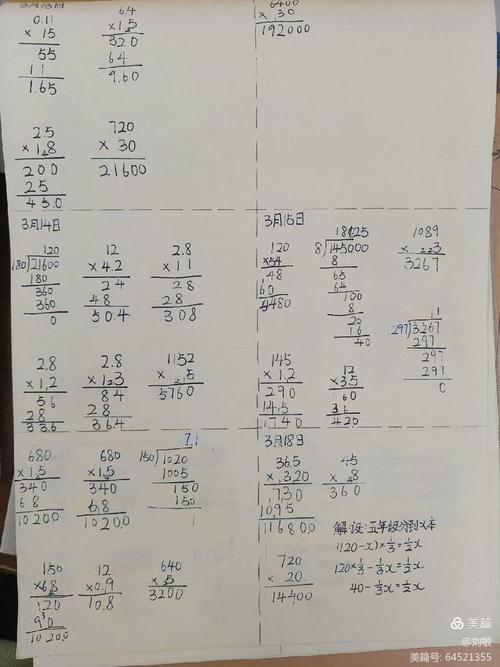 3月13日
0.11
× 15
55
11
1.65
6.4
×1.5
320
64
9.60
6400
× 30
192000
2.5
×1.8
200
25
4.50
720
× 30
21600
3月14日
120
180)21600
180
360
360
0
12
×4.2
24
48
50.4
2.8
×11
28
28
308
2.8
×1.2
56
28
3.36
2.8
×1.3
84
28
3.64
1152
× 5
5760
680
×1.5
340
68
10200
680
×1.5
340
6.8
10200
7.1
150)1020
1005
150
150
1
150
×6.8
120
90
10200
12
×0.9
10.8
640
×5
3200
3月15日
120
×54
48
60
6480
18025
8)145000
8
65
64
100
8
20
16
40
1089
× 3
3267
11
297)3267
297
297
297
0
145
×1.2
290
14.5
1740
12
×35
60
36
420
3月18日
36.5
×.320
730
1095
11680.0
45
×8
360
720
× 20
14400
解:设:五年级分到x本
(120-x)×⅓=½x
120×⅓-⅓x=½x
40-⅓x=½x
美篇
@刘敏
美篇号: 64521355